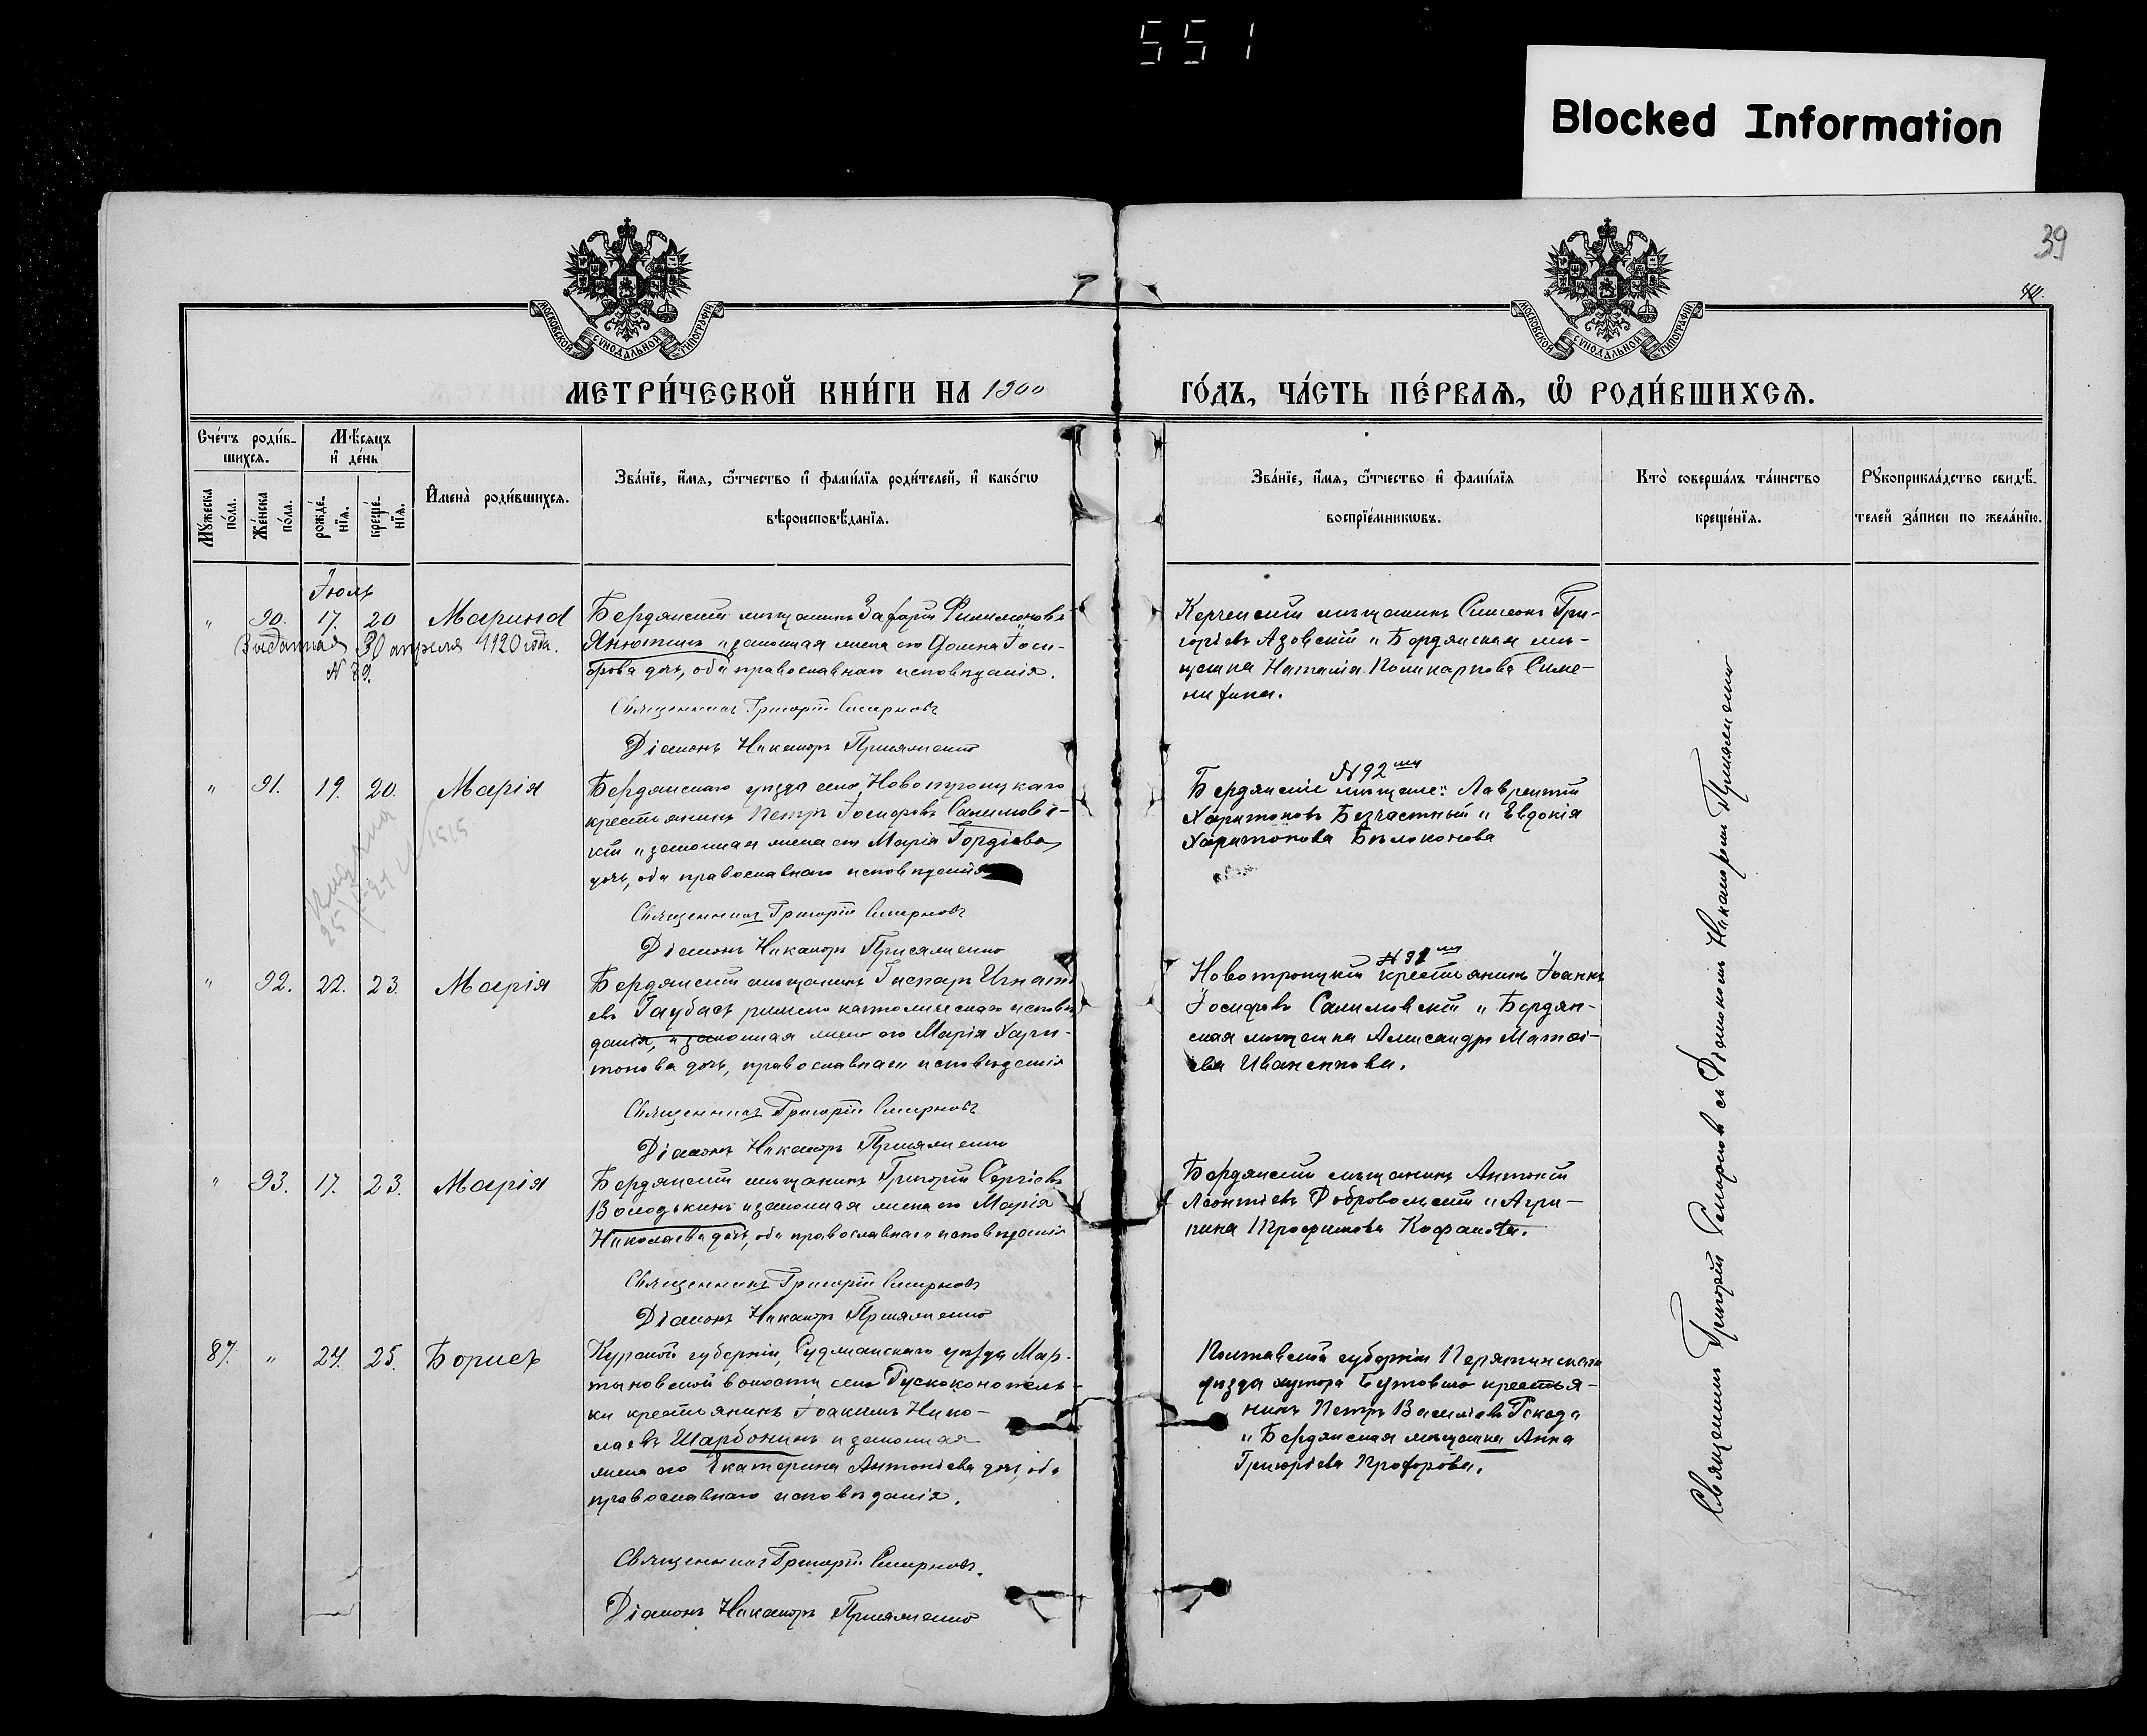 551
Blocked Information
39
МОСКОВСКОЙ СѴНОДАЛЬНОЙ ТИПОГРАФІИ
МОСКОВСКОЙ СѴНОДАЛЬНОЙ ТИПОГРАФІИ
МЕТРИ́ЧЕСКОЙ КНИ́ГИ НА 1900
ГО́ДЪ, ЧА́СТЬ ПЕ́РВАѦ, Ѡ҆ РОДИ́ВШИХСѦ.
Сче́тъ роди́в-
шихсѧ.
Мѣ́сяцъ
и҆ де́нь
Мꙋ́жеска
по́ла.
Же́нска
по́ла.
рожде́-
нїѧ.
креще́-
нїѧ.
И҆мена̀ роди́вшихсѧ.
Зва́нїе, и҆́мѧ, ѻ҆́тчество и҆ фами́лїѧ роди́телей, и҆ како́гѡ
вѣроисповѣ́данїѧ.
Зва́нїе, и҆́мѧ, ѻ҆́тчество и҆ фами́лїѧ
воспрїе́мникѡвъ.
Кто̀ соверша́лъ та́инство
креще́нїѧ.
Рꙋкоприкла́дство свидѣ́-
телей за́писи по жела́нїю.
Іюль
" 90. 17. 20 Марина
Выдана 30 апреля 1920 года.
N 79.
Бердянскій мѣщанинъ Захарій Филимоновъ
Анютинъ и законная жена его Домна Іоси-
фова дочь, оба православнаго исповѣданія.
Священникъ Григорій Смирновъ
Діаконъ Никаноръ Присяженко
Керченскій мѣщанинъ Симеонъ Гри-
горіевъ Азовскій и Бердянская мѣ-
щанка Наталія Поликарпова
" 91. 19. 20. Марія
Бердянскаго уѣзда села Новотроицкаго
крестьянинъ Петръ Іосифовъ Салимовс-
кій и законная жена его Марія Гордіева
дочь, оба православнаго исповѣданія
Священникъ Григорій Смирновъ
Діаконъ Никаноръ Присяженко
N 92
Бердянскіе мѣщане: Лаврентій
Харитоновъ Безчастный и Евдокія
Харитонова Бѣлоконова
" 92. 22. 23. Марія
Бердянскій мѣщанинъ Гаспаръ Игнать
евъ Гаубасъ римско католическаго исповѣ
данія, и законная жена его Марія Хари-
тонова дочь, православнаго исповѣданія
Священникъ Григорій Смирновъ
Діаконъ Никаноръ Присяженко
N 91
Новотроицкій крестьянинъ Іоаннъ
Іосифовъ Салимовскій и Бердян-
ская мѣщанка Александра Матѳі-
ева Иваненкова.
" 93. 17. 23. Марія
Бердянскій мѣщанинъ Григорій Сергіевъ
Володькинъ и законная жена его Марія
Николаева дочь, оба православнаго исповѣданія
Священникъ Григорій Смирновъ
Діаконъ Никаноръ Присяженко
Бердянскій мѣщанинъ Антоній
Леонтіевъ Добровольскій и Агри-
пина Трофимова Кофанова.
87. " 24. 25. Борисъ
Курской губерніи, Суджанскаго уѣзда Мар-
тыновской волости села Рускоконопель-
ки крестьянинъ Іоакимъ Нико-
лаевъ Шарбонинъ и законная
жена его Екатерина Антоніева дочь, оба
православнаго исповѣданія.
Священникъ Григорій Смирновъ.
Діаконъ Никаноръ Присяженко
Полтавской губерніи Пирятинскаго
уѣзда хутора Бутовскаго крестья-
нинъ Петръ Василіевъ
и Бердянская мѣщанка Анна
Григоріева Прохорова.
Священникъ Григорій Смирновъ съ Діакономъ Никаноромъ Присяженко